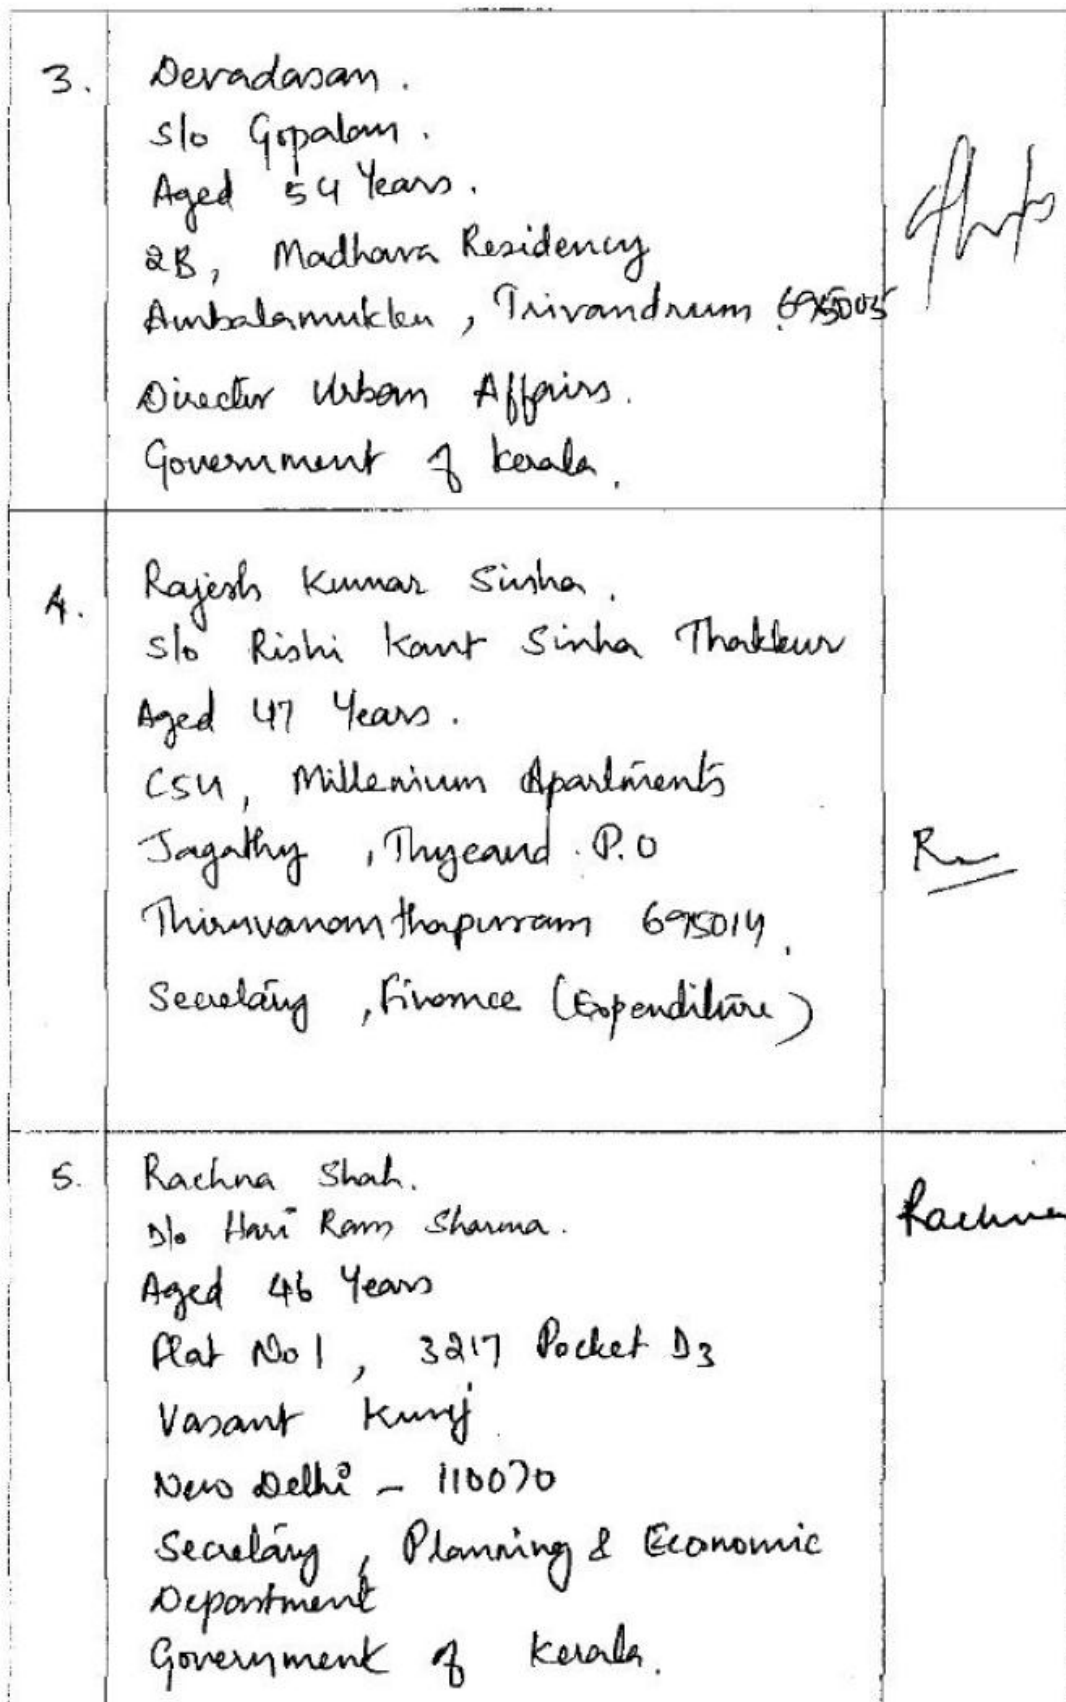 3.
Devadasan.
S/o Gopalan.
Aged 54 Years.
2B, Madhava Residency
Ambalamukku, Trivandrum 695005
Director Urban Affairs.
Government of Kerala.
4.
Rajesh Kumar Sinha.
S/o Rishi Kant Sinha Thakkur
Aged 47 Years.
C5H, Millenium Apartments
Jagathy, Thycaud. P.O
Thiruvananthapuram 695014.
Secretary, Finance (Expenditure)
5.
Rachna Shah.
D/o Hari Ram Sharma.
Rachna
Aged 46 Years
Flat No 1, 3217 Pocket D3
Vasant Kunj
New Delhi - 110070
Secretary, Planning & Economic
Department
Government of Kerala.